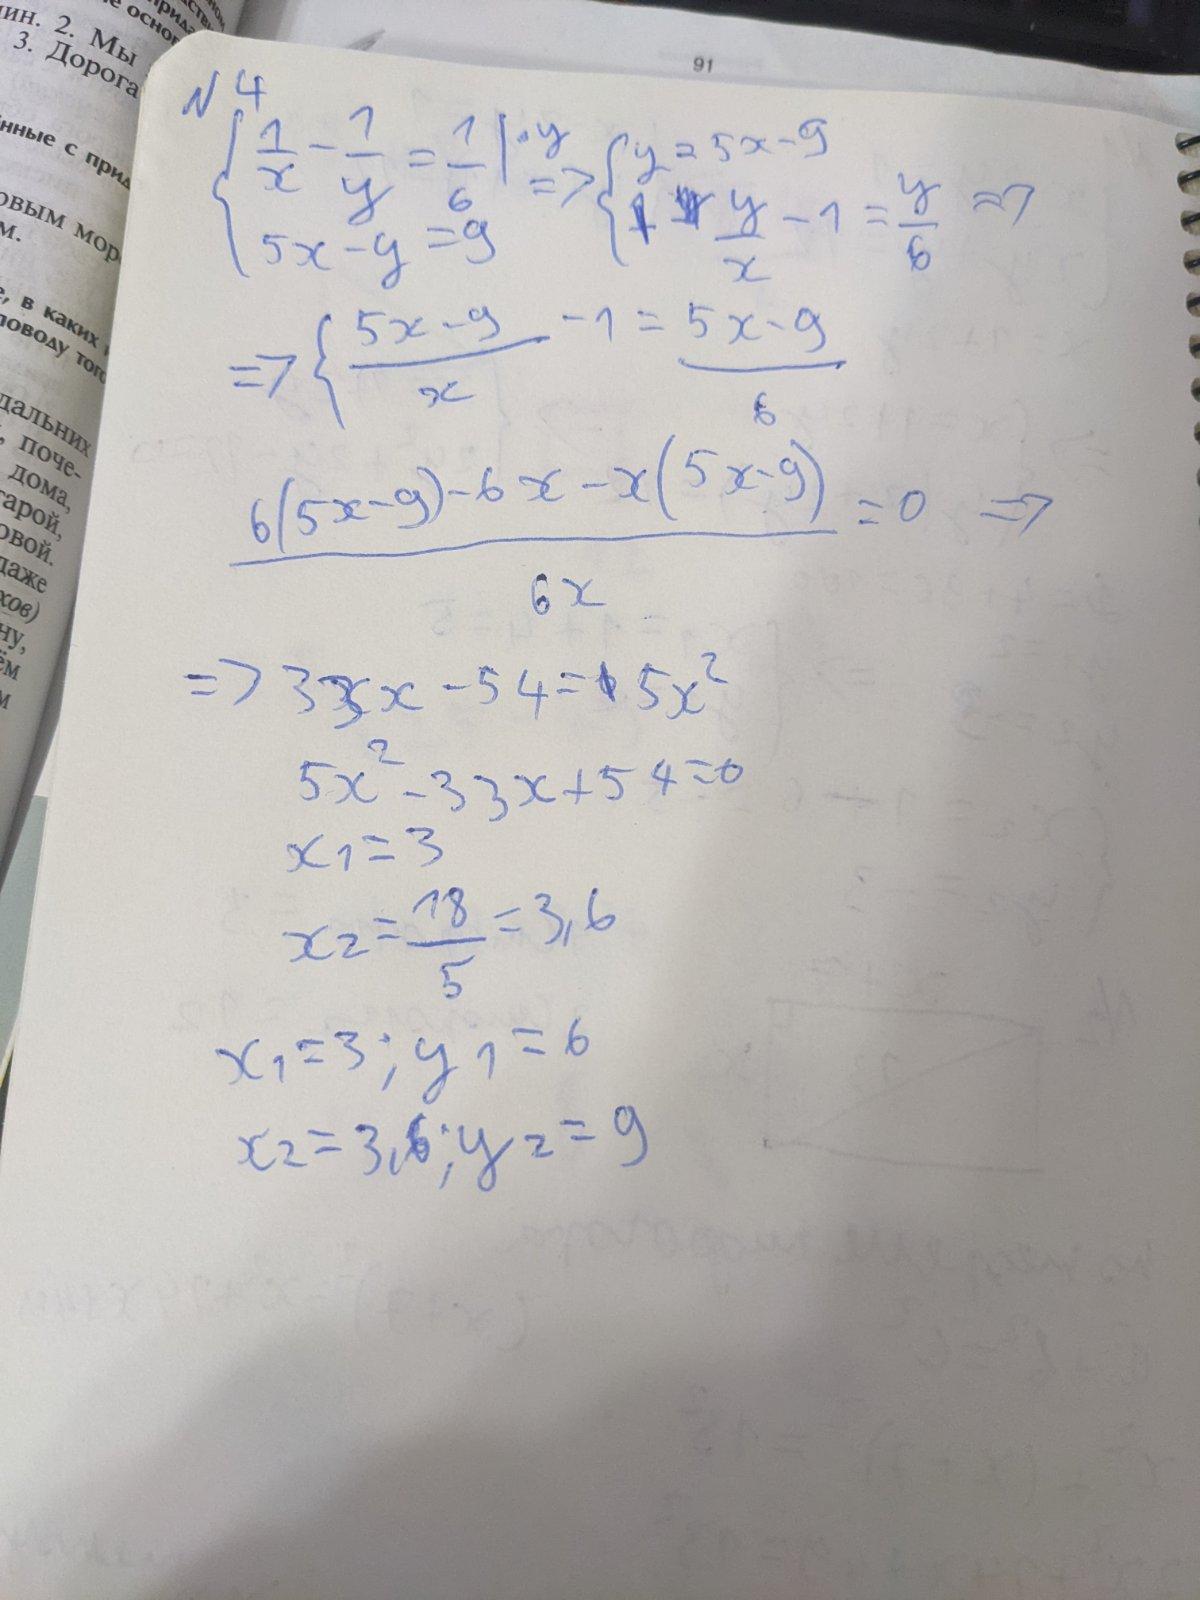 ин. 2. Мы
3. Дорога
нные с прид
овым мор
м.
е, в каких
поводу того
дальних
, поче-
дома,
тарой,
овой.
даже
хов)
ну,
ём
м
91
N 4
{ 1/x - 1/y = 1/6 | · y => { y = 5x - 9
5x - y = 9 y/x - 1 = y/6 =>
=> { (5x - 9)/x - 1 = (5x - 9)/6
(6(5x - 9) - 6x - x(5x - 9))/6x = 0 =>
=> 33x - 54 = 5x²
5x² - 33x + 54 = 0
x1 = 3
x2 = 18/5 = 3,6
x1 = 3; y1 = 6
x2 = 3,6; y2 = 9